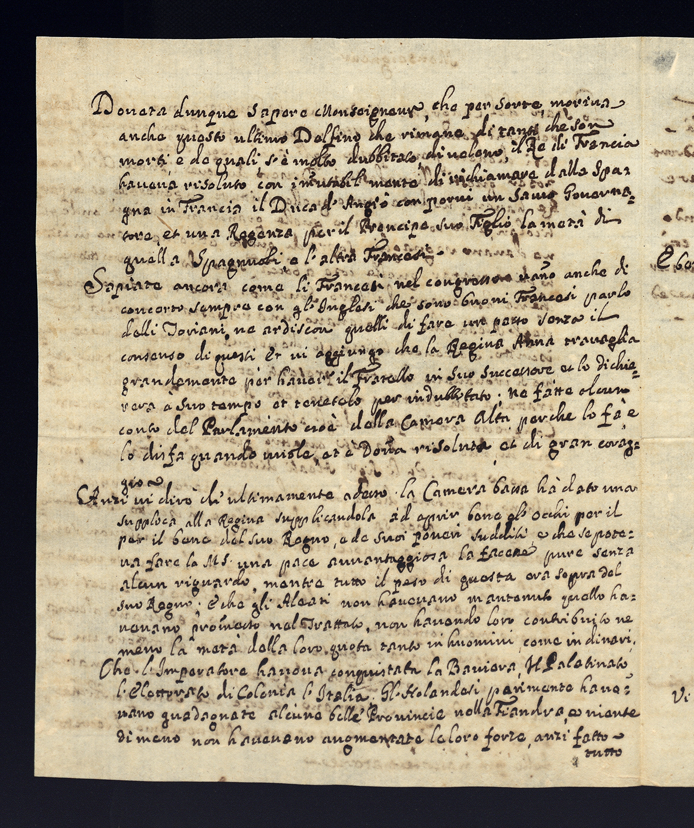 Dovete dunque sapere Monseigneur, che per sorte moriva
anche questo ultimo Delfino che rimane di tanti che son
morti e de quali s'è molto dubbitato di veleno, il Re di Francia
haveva risoluto con immutabil mente di richiamare dalla Spa=
gna in Francia il Duca d'Angiò con porvi un Savio Governa=
tore, et una Regenza per il Prencipe suo Figlio, la metà di
quella Spagnuoli e l'altra Francesi.
Sapiate ancora come li Francesi nel congresso vano anche di
concerto sempre con gl'Inglesi che sono buoni Francesi parlo
delli Toriani, ne ardiscon quelli di fare un passo senza il
consenso di questi et vi aggiungo che la Regina Anna travaglia
grandemente per haver il Fratello in suo successore et lo dichie=
rera a suo tempo et tenetelo per indubbitato; ne fatte alcun
conto del Parlamento cioè della Camera Alta perche lo fà e
lo disfa quando vuole, et è Dona risoluta et di gran corag=
gio
Anzi vi dirò ch'ultimamente adesso la Camera bassa hà dato una
supplica alla Regina supplicandola ad apprir bene gl'occhi per il
per il bene del suo Regno, e de suoi poveri sudditi e che se pote=
va fare la M.S. una pace avvantaggiosa la facesse pure senza
alcun riguardo, mentre tutto il peso di questa era sopra del
suo Regno; e che gli Aleati non havevano mantenuto quello ha=
vevano promesso nel Trattato, non havendo loro contribuito ne
meno la metà della loro quota tanto in huomini, come in dineri,
Che l'Imperatore haveva conquistata la Baviera, Il Palatinato
l'Elettorato di Colonia l'Italia. Gl'Holandesi parimente have=
vano guadagnate alcune belle Provincie nella Fiandra, e niente
di meno non havevano augmentate le loro forze, anzi fatto
tutto